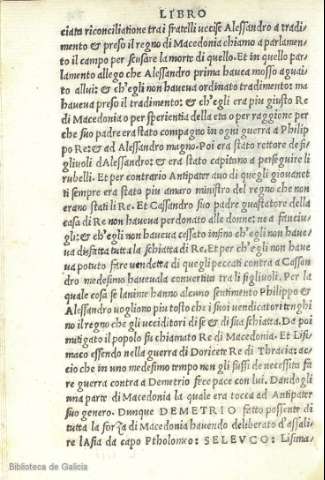 LIBRO
ciata riconciliatione tra i fratelli uccise Alessandro a tradi
mento & preso il regno di Macedonia chiamo a parlamen
to il campo per scusare la morte di quello. Et in quello par
lamento allego che Alessandro prima haueua mosso aguai
to allui: & ch'egli non haueua ordinato tradimento: ma
haueua preso il tradimento: & ch'egli era piu giusto Re
di Macedonia o per sperientia della eta o per raggione per
che suo padre era stato compagno in ogni guerra a Philip
po Re: & ad Alessandro magno. Poi era stato rettore de fi
gliuoli d'Alessandro: & era stato capitano a perseguire li
rubelli. Et per contrario Antipater auo di quegli giouanet
ti sempre era stato piu amaro ministro del regno che non
erano stati li Re. Et Cassandro suo padre guastatore della
casa di Re non haueua perdonato alle donne: ne a fanciu-
gli: & ch'egli non haueua cessato insino ch'egli non haue
ua disfatta tutta la schiatta di Re. Et per che egli non haue
ua potuto fare uendetta di quegli peccati contra a Cassan
dro medesimo haueuala conuertita tra li figliuoli. Per la
quale cosa se lanime hanno alcuno sentimento Philippo &
Alessandro uogliono piu tosto che i suoi uendicatori tenghi
no il regno che gli ucciditori di se & di sua schiatta. Da poi
mitigato il popolo fu chiamato Re di Macedonia. Et Lisi
maco essendo nella guerra di Doricete Re di Thracia: ac
cio che in uno medesimo tempo non gli fussi de necessita fa
re guerra contra a Demetrio fece pace con lui. Dandogli
una parte di Macedonia la quale era tocca ad Antipater
suo genero. Dunque DEMETRIO fatto possente di
tutta la forza di Macedonia hauendo deliberato d'assali
re lAsia da capo Ptholomeo: SELEVCO: Lisima-
Biblioteca de Galicia